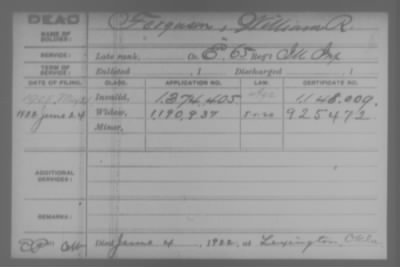 DEAD
NAME OF SOLDIER: Ferguson, William R.
SERVICE: Late rank, Co. E, 65 Reg't Ill Inf
TERM OF SERVICE: Enlisted , 1 Discharged , 1
DATE OF FILING. CLASS. APPLICATION NO. LAW. CERTIFICATE NO.
Invalid, 1,374,405 1,148,009.
1922 June 24 Widow, 1,190,937 925472.
Minor,
ADDITIONAL SERVICES:
REMARKS:
Died June 4, 1922, at Lexington, Okla